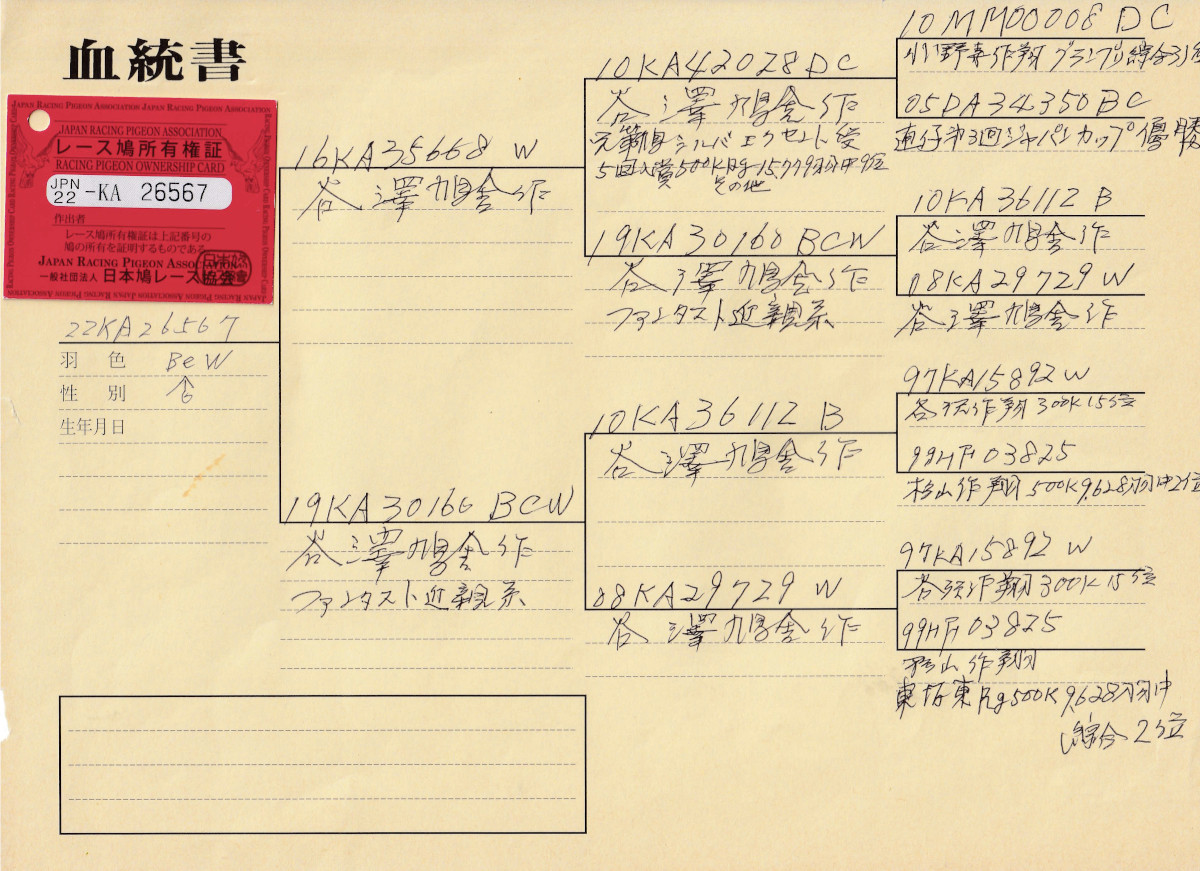 血統書
JAPAN RACING PIGEON ASSOCIATION JAPAN RACING PIGEON ASSOCIATION
JAPAN RACING PIGEON ASSOCIATION
レース鳩所有権証
RACING PIGEON OWNERSHIP CARD
JPN 22 -KA 26567
作出者
レース鳩所有権証は上記番号の
鳩の所有を証明するものである
JAPAN RACING PIGEON ASSOCIATION
一般社団法人 日本鳩レース協会
22KA26567
羽色 BeW
性別 ♂
生年月日
16KA35668 W
谷澤鳩舎作
19KA30166 BCW
谷澤鳩舎作
ファンタスト近親系
10KA42028 DC
谷澤鳩舎作
シルバーエクセレント
5回入賞500K Rg 15779羽中9位
その他
19KA30160 BCW
谷澤鳩舎作
ファンタスト近親系
10KA36112 B
谷澤鳩舎作
08KA29729 W
谷澤鳩舎作
10MM00008 DC
作翔 グランプリ総合31位
05DA34350 BC
直仔第3回ジャパンカップ優勝
10KA36112 B
谷澤鳩舎作
08KA29729 W
谷澤鳩舎作
97KA15892 W
作翔300K15位
99HF03825
杉山作翔500K9,628羽中2位
97KA15892 W
作翔300K15位
99HF03825
杉山作翔
東坂東Rg500K9,628羽中
総合2位